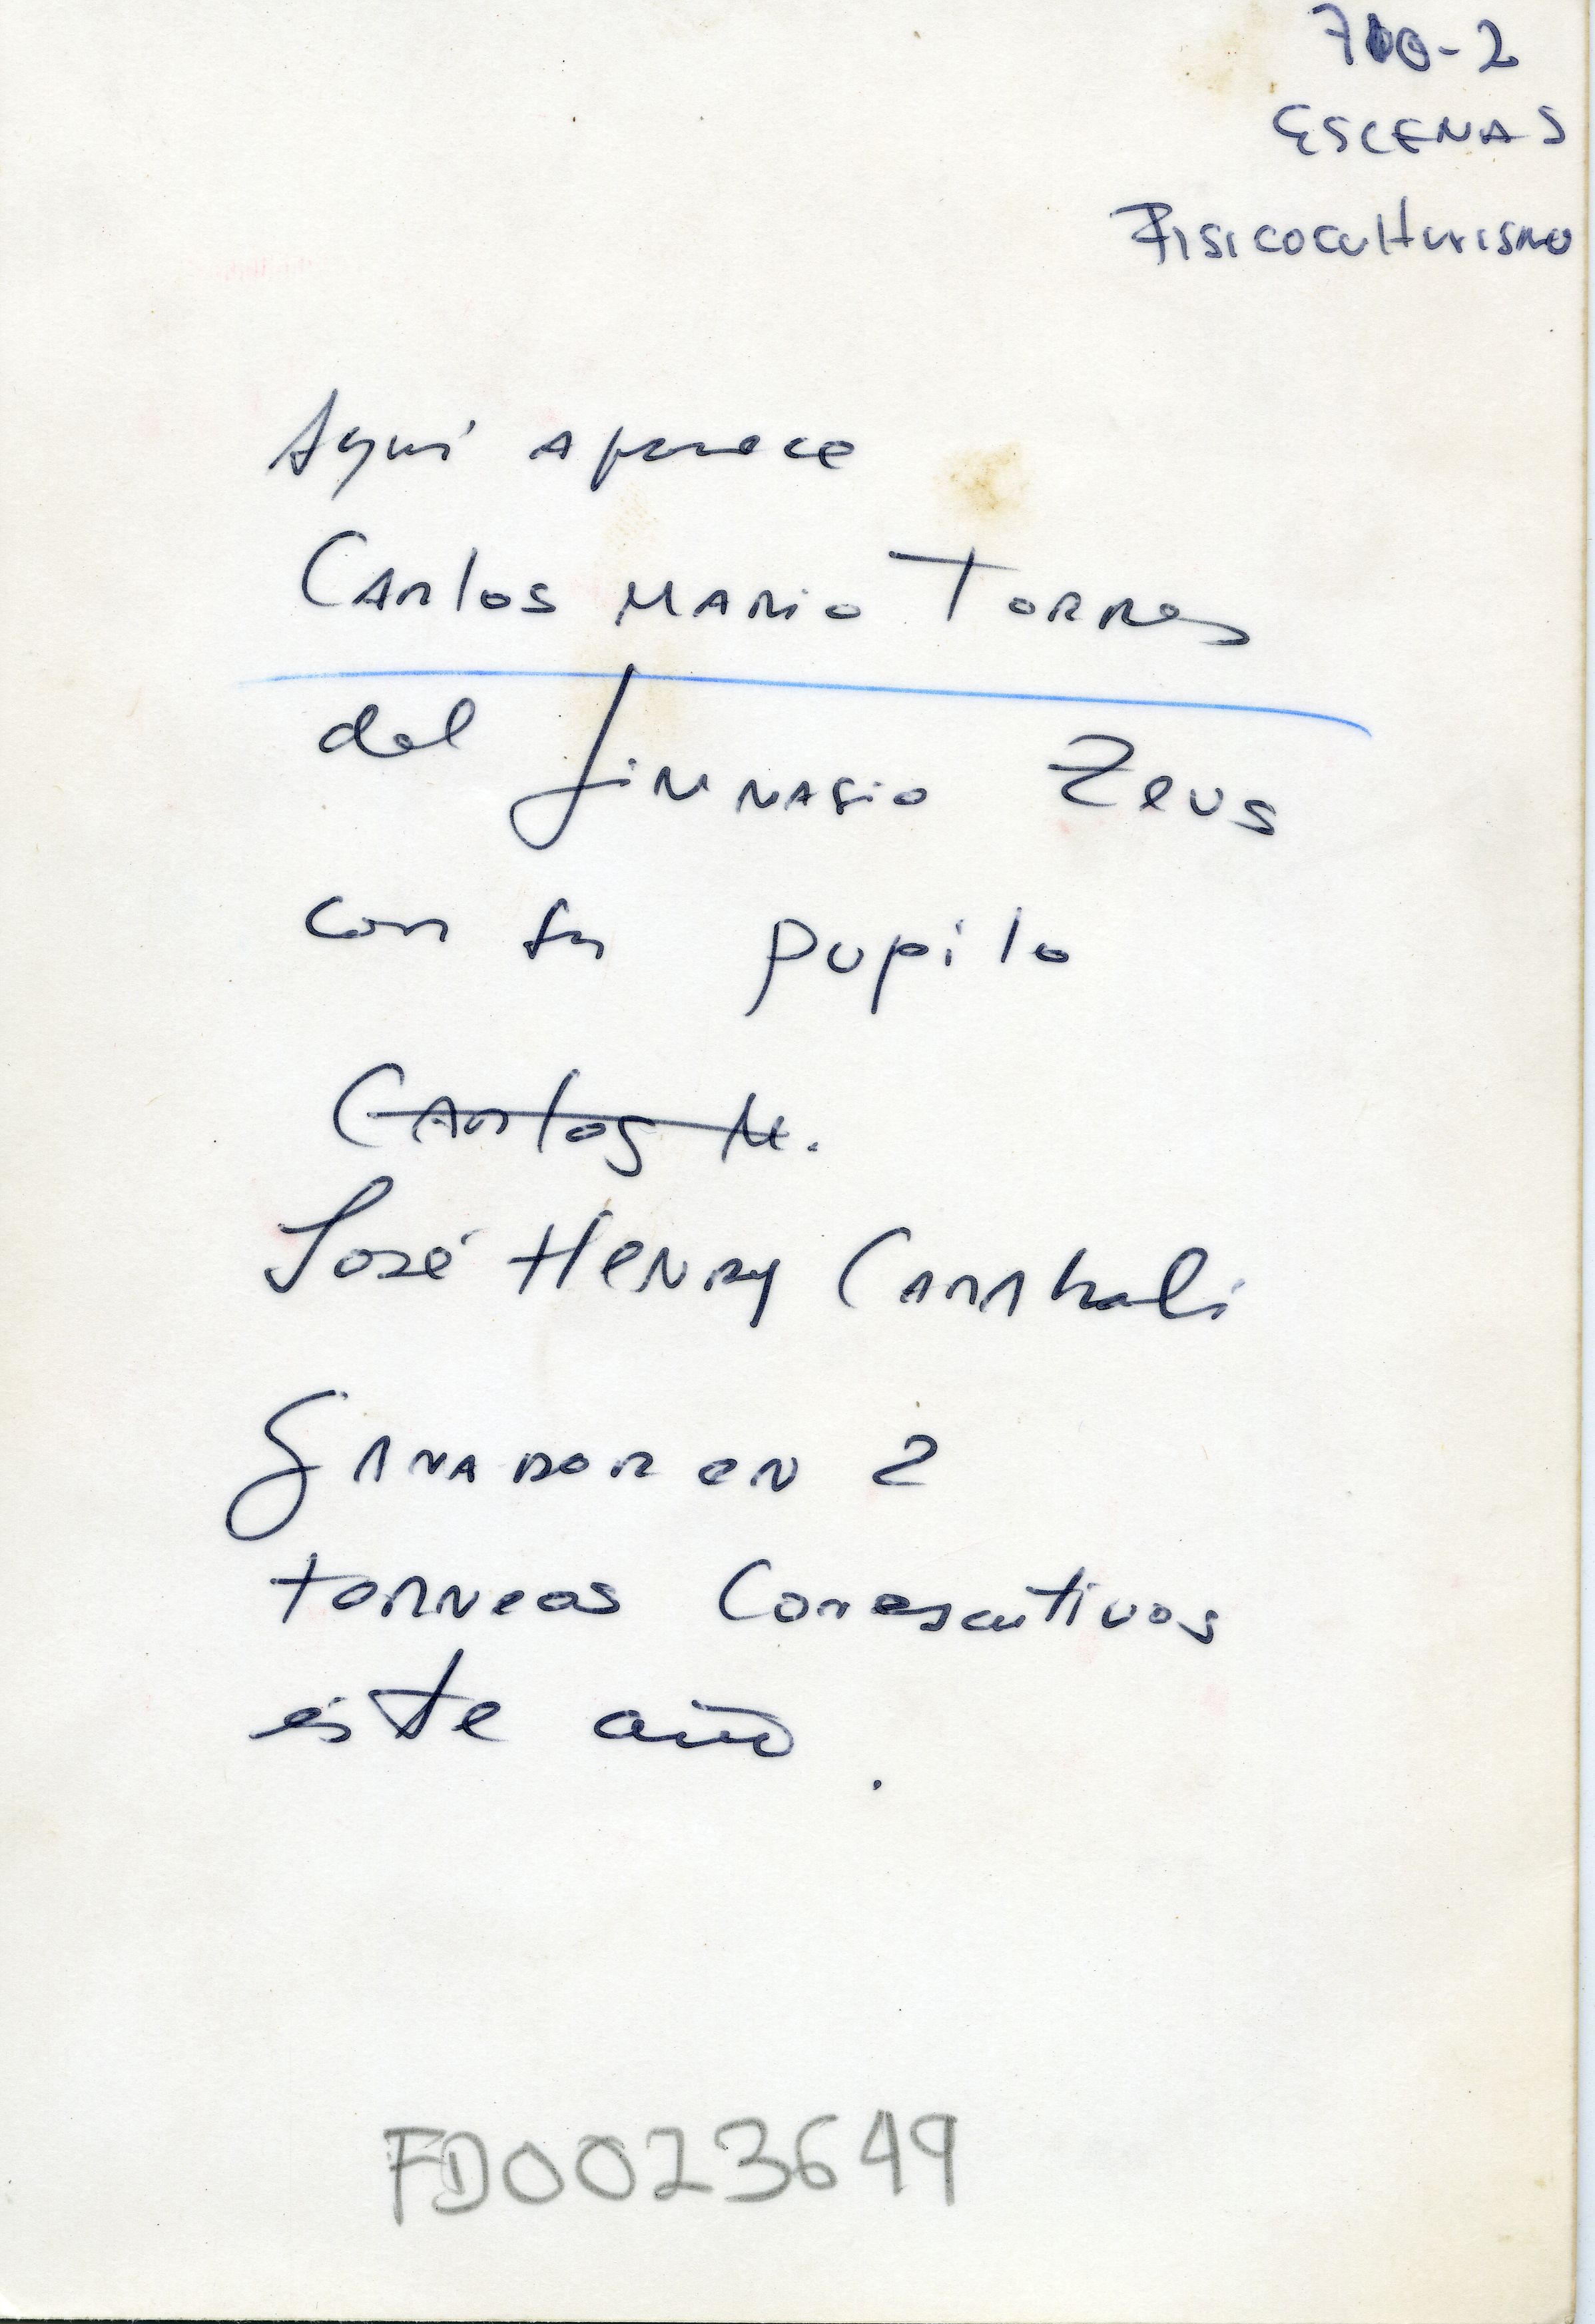 700-2
ESCENAS
Fisicoculturismo
Aqui aparece
Carlos Mario Torres
del Jimnasio Zeus
con su pupilo
Carlos M.
José Henry Carabali
Ganador en 2
torneos Conescutivos
éste año.
FD0023649